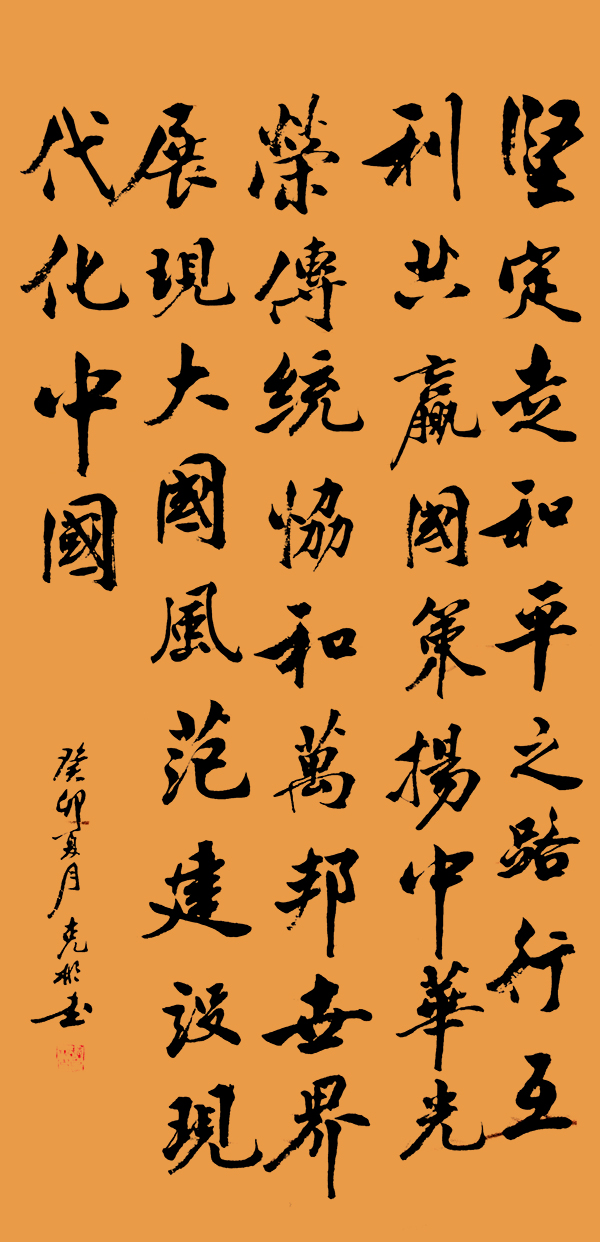 堅定走和平之路行互
利共贏國策揚中華光
榮傳統協和萬邦世界
展現大國風范建设現
代化中國
癸卯夏月克彬书